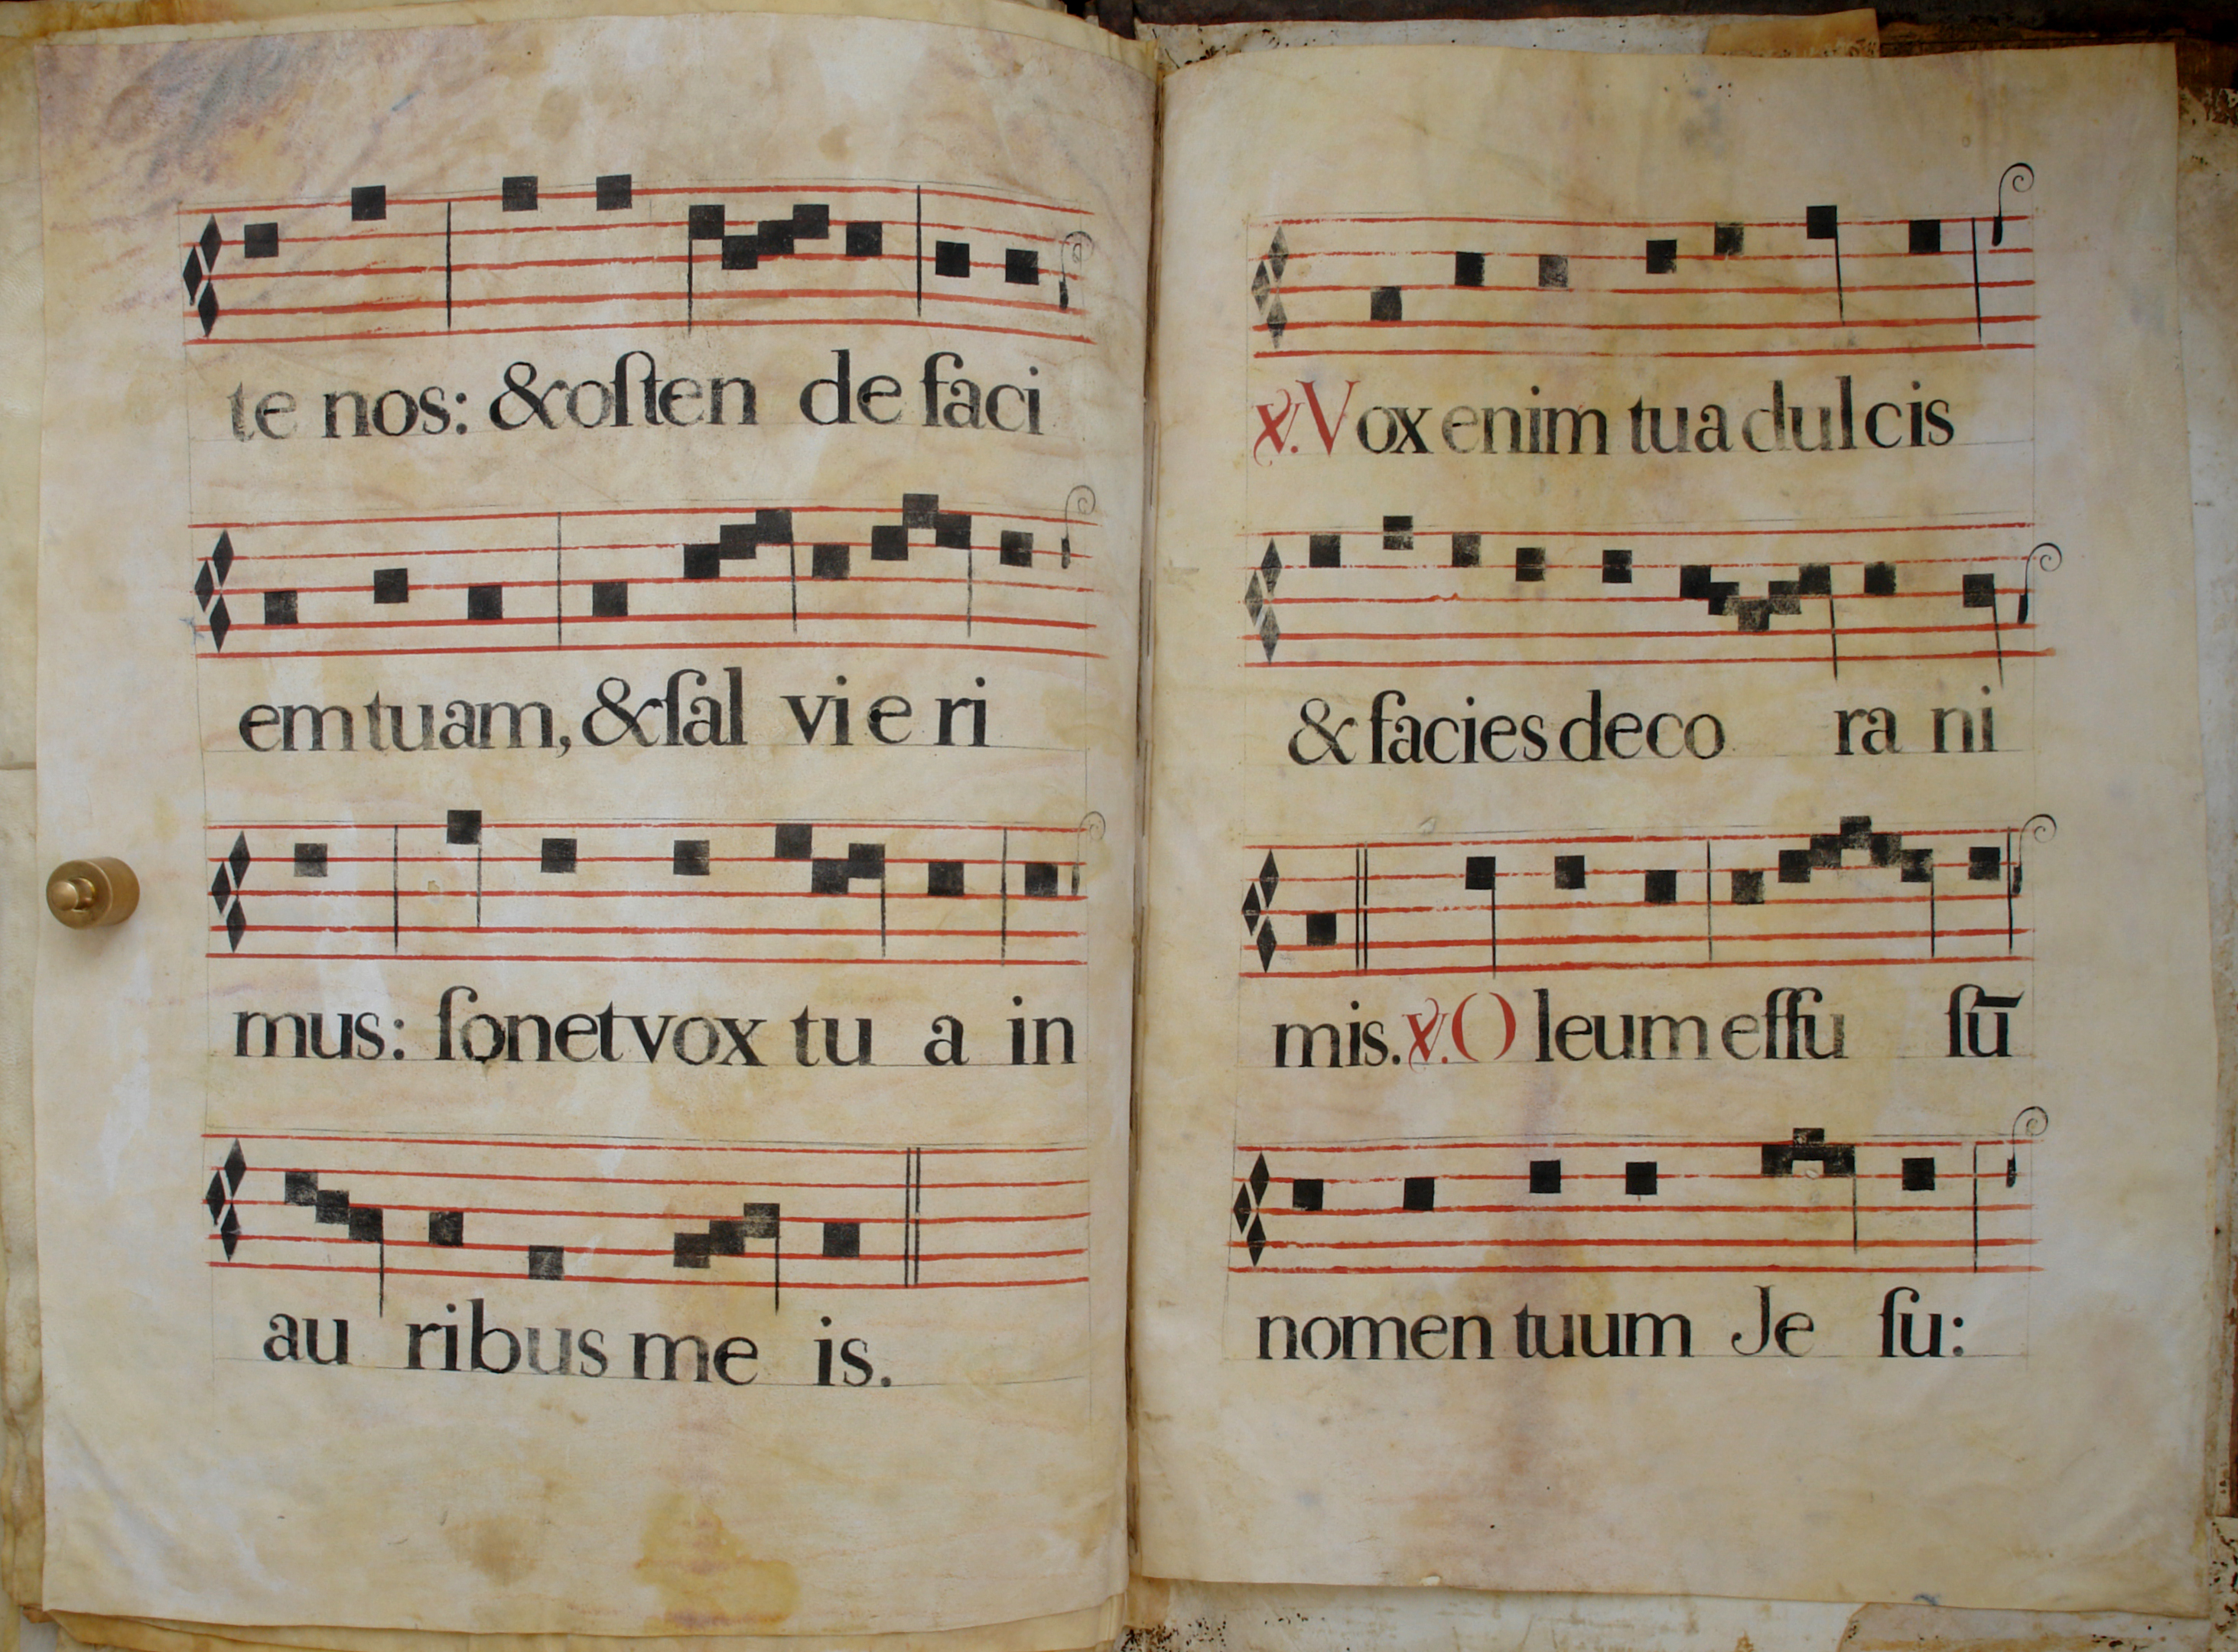 te nos: & oſten de faci
em tuam, & ſal vi e ri
mus: ſonet vox tu a in
au ribus me is.
℣. Vox enim tua dulcis
& facies deco ra ni
mis. ℣. O leum effu ſū
nomen tuum Je ſu: